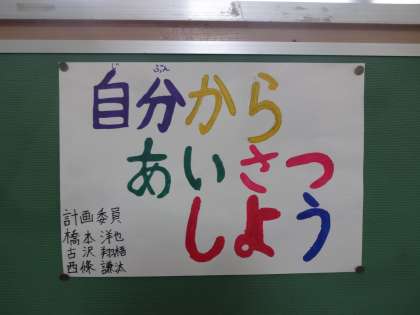 自分から
あいさつ
しよう
計画委員
橋本 洋也
古沢 翔悟
西條 謙太